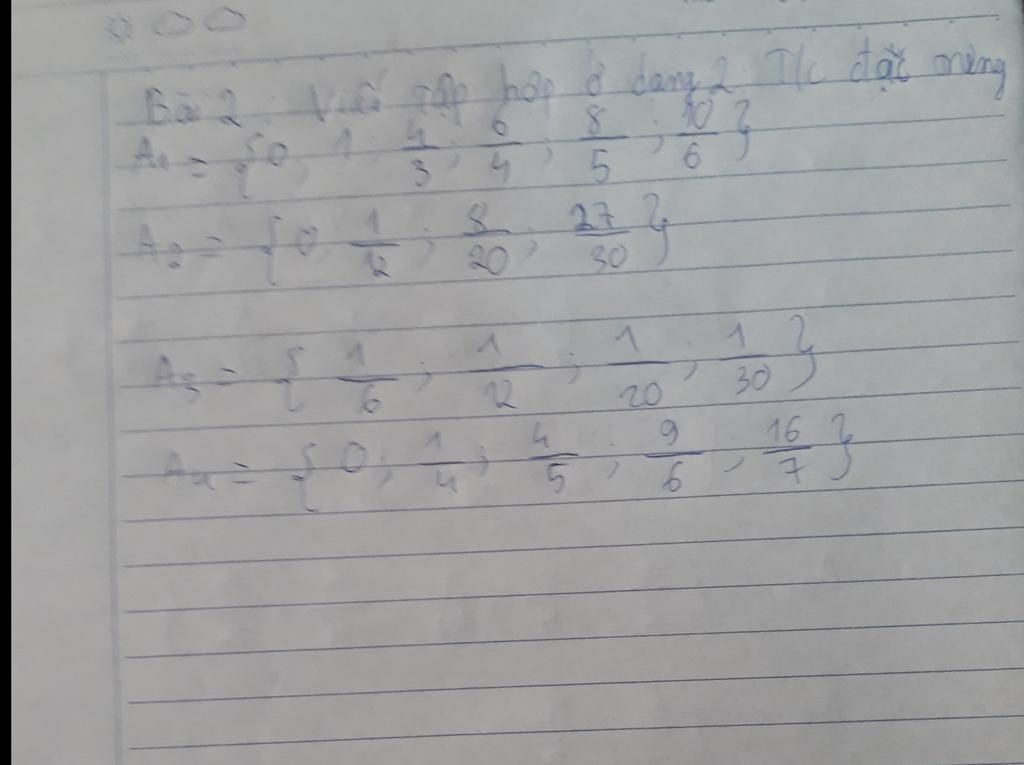 Bài 2: Viết tập hợp ở dạng 2. T/c đặc trưng
A₁ = {0; 1; 4/3; 6/4; 8/5; 10/6}
A₂ = {0; 1/12; 8/20; 27/30}
A₃ = {1/6; 1/12; 1/20; 1/30}
A₄ = {0; 1/4; 4/5; 9/6; 16/7}